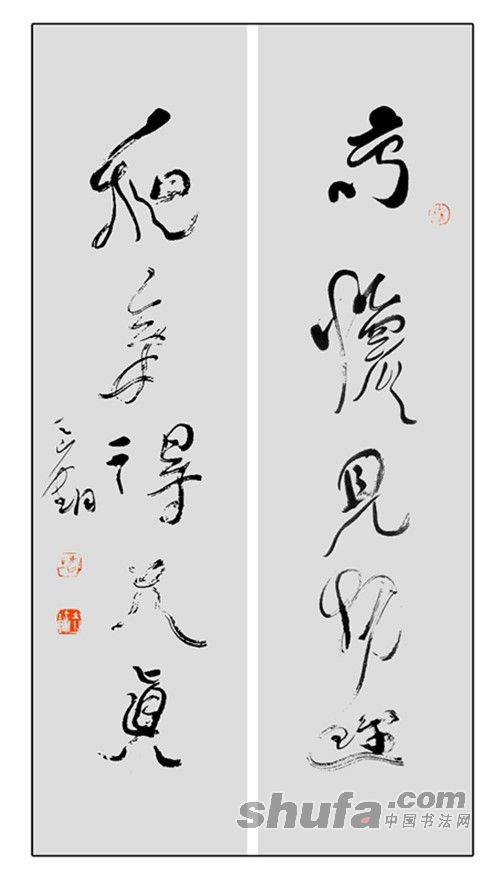 高懷見物理
和氣得天真
shufa.com
中国书法网